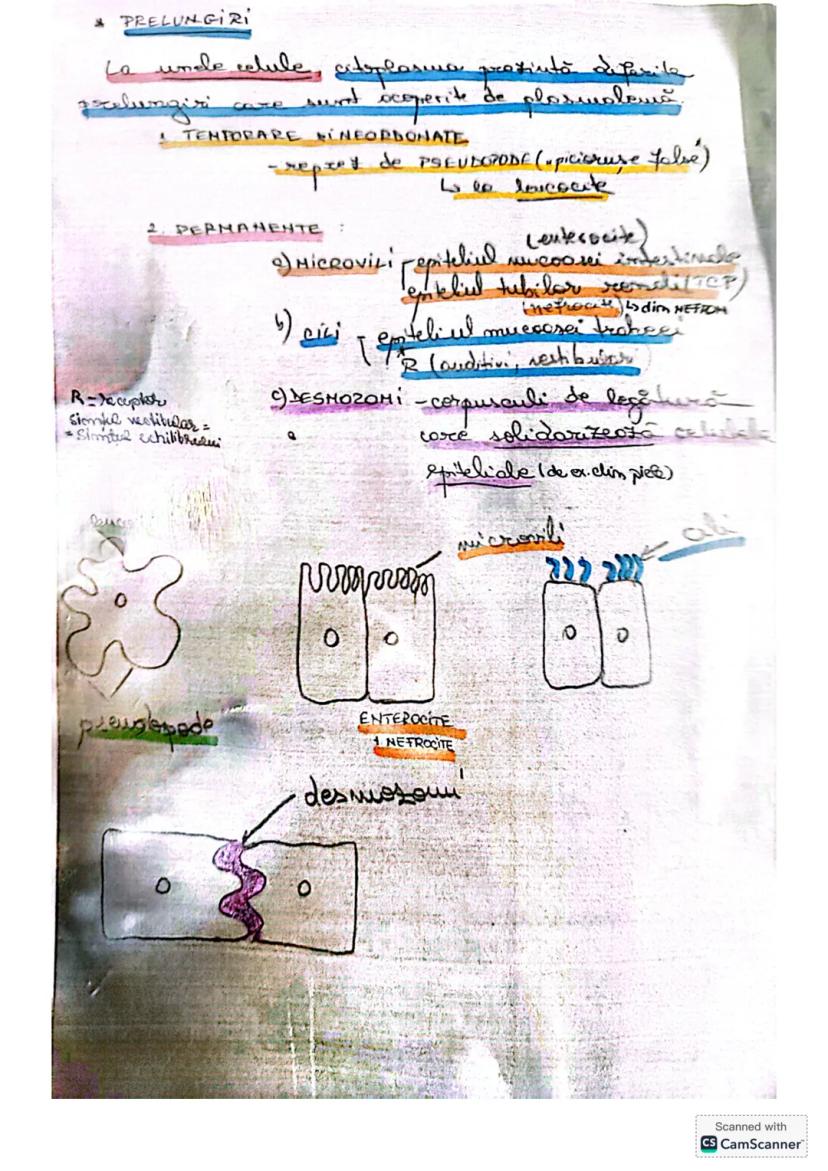 * PRELUNGIRI
La unele celule, citoplasma prezintă diferite
prelungiri care sunt acoperite de plasmalemă.
1. TEMPORARE ȘI NEORDONATE
- reprez de PSEUDOPODE („piciorușe false")
↳ la leucocite
2. PERMANENTE :
(enterocite)
a) MICROVILI - epiteliul mucoasei intestinale
epiteliul tubilor renali (TCP)
(nefrocite) ↳ din NEFRON
b) cili - epiteliul mucoasei traheei
R (auditivi, vestibulari)
R = receptor
Simțul vestibular =
= Simțul echilibrului
c) DESMOZOMI - corpusculi de legătură
care solidarizează celulele
epiteliale (de ex. din piele)
microvili
cili
pseudopode
ENTEROCITE
NEFROCITE
desmozomi
Scanned with
CS CamScanner